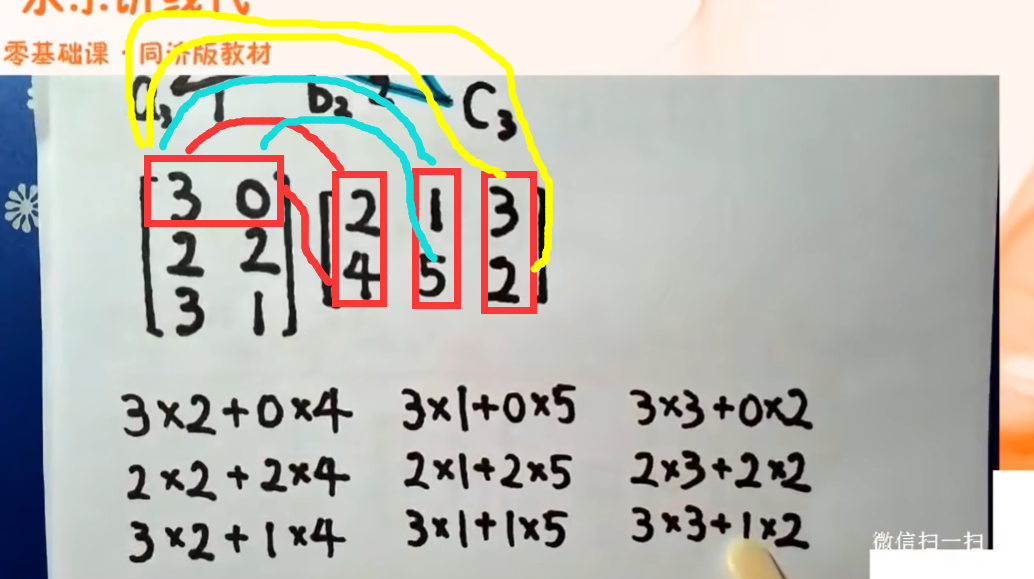 零基础课·同济版教材
a₃ b₂ C₃
3 0 2 1 3
2 2 4 5 2
3 1
3×2+0×4 3×1+0×5 3×3+0×2
2×2+2×4 2×1+2×5 2×3+2×2
3×2+1×4 3×1+1×5 3×3+1×2
微信扫一扫